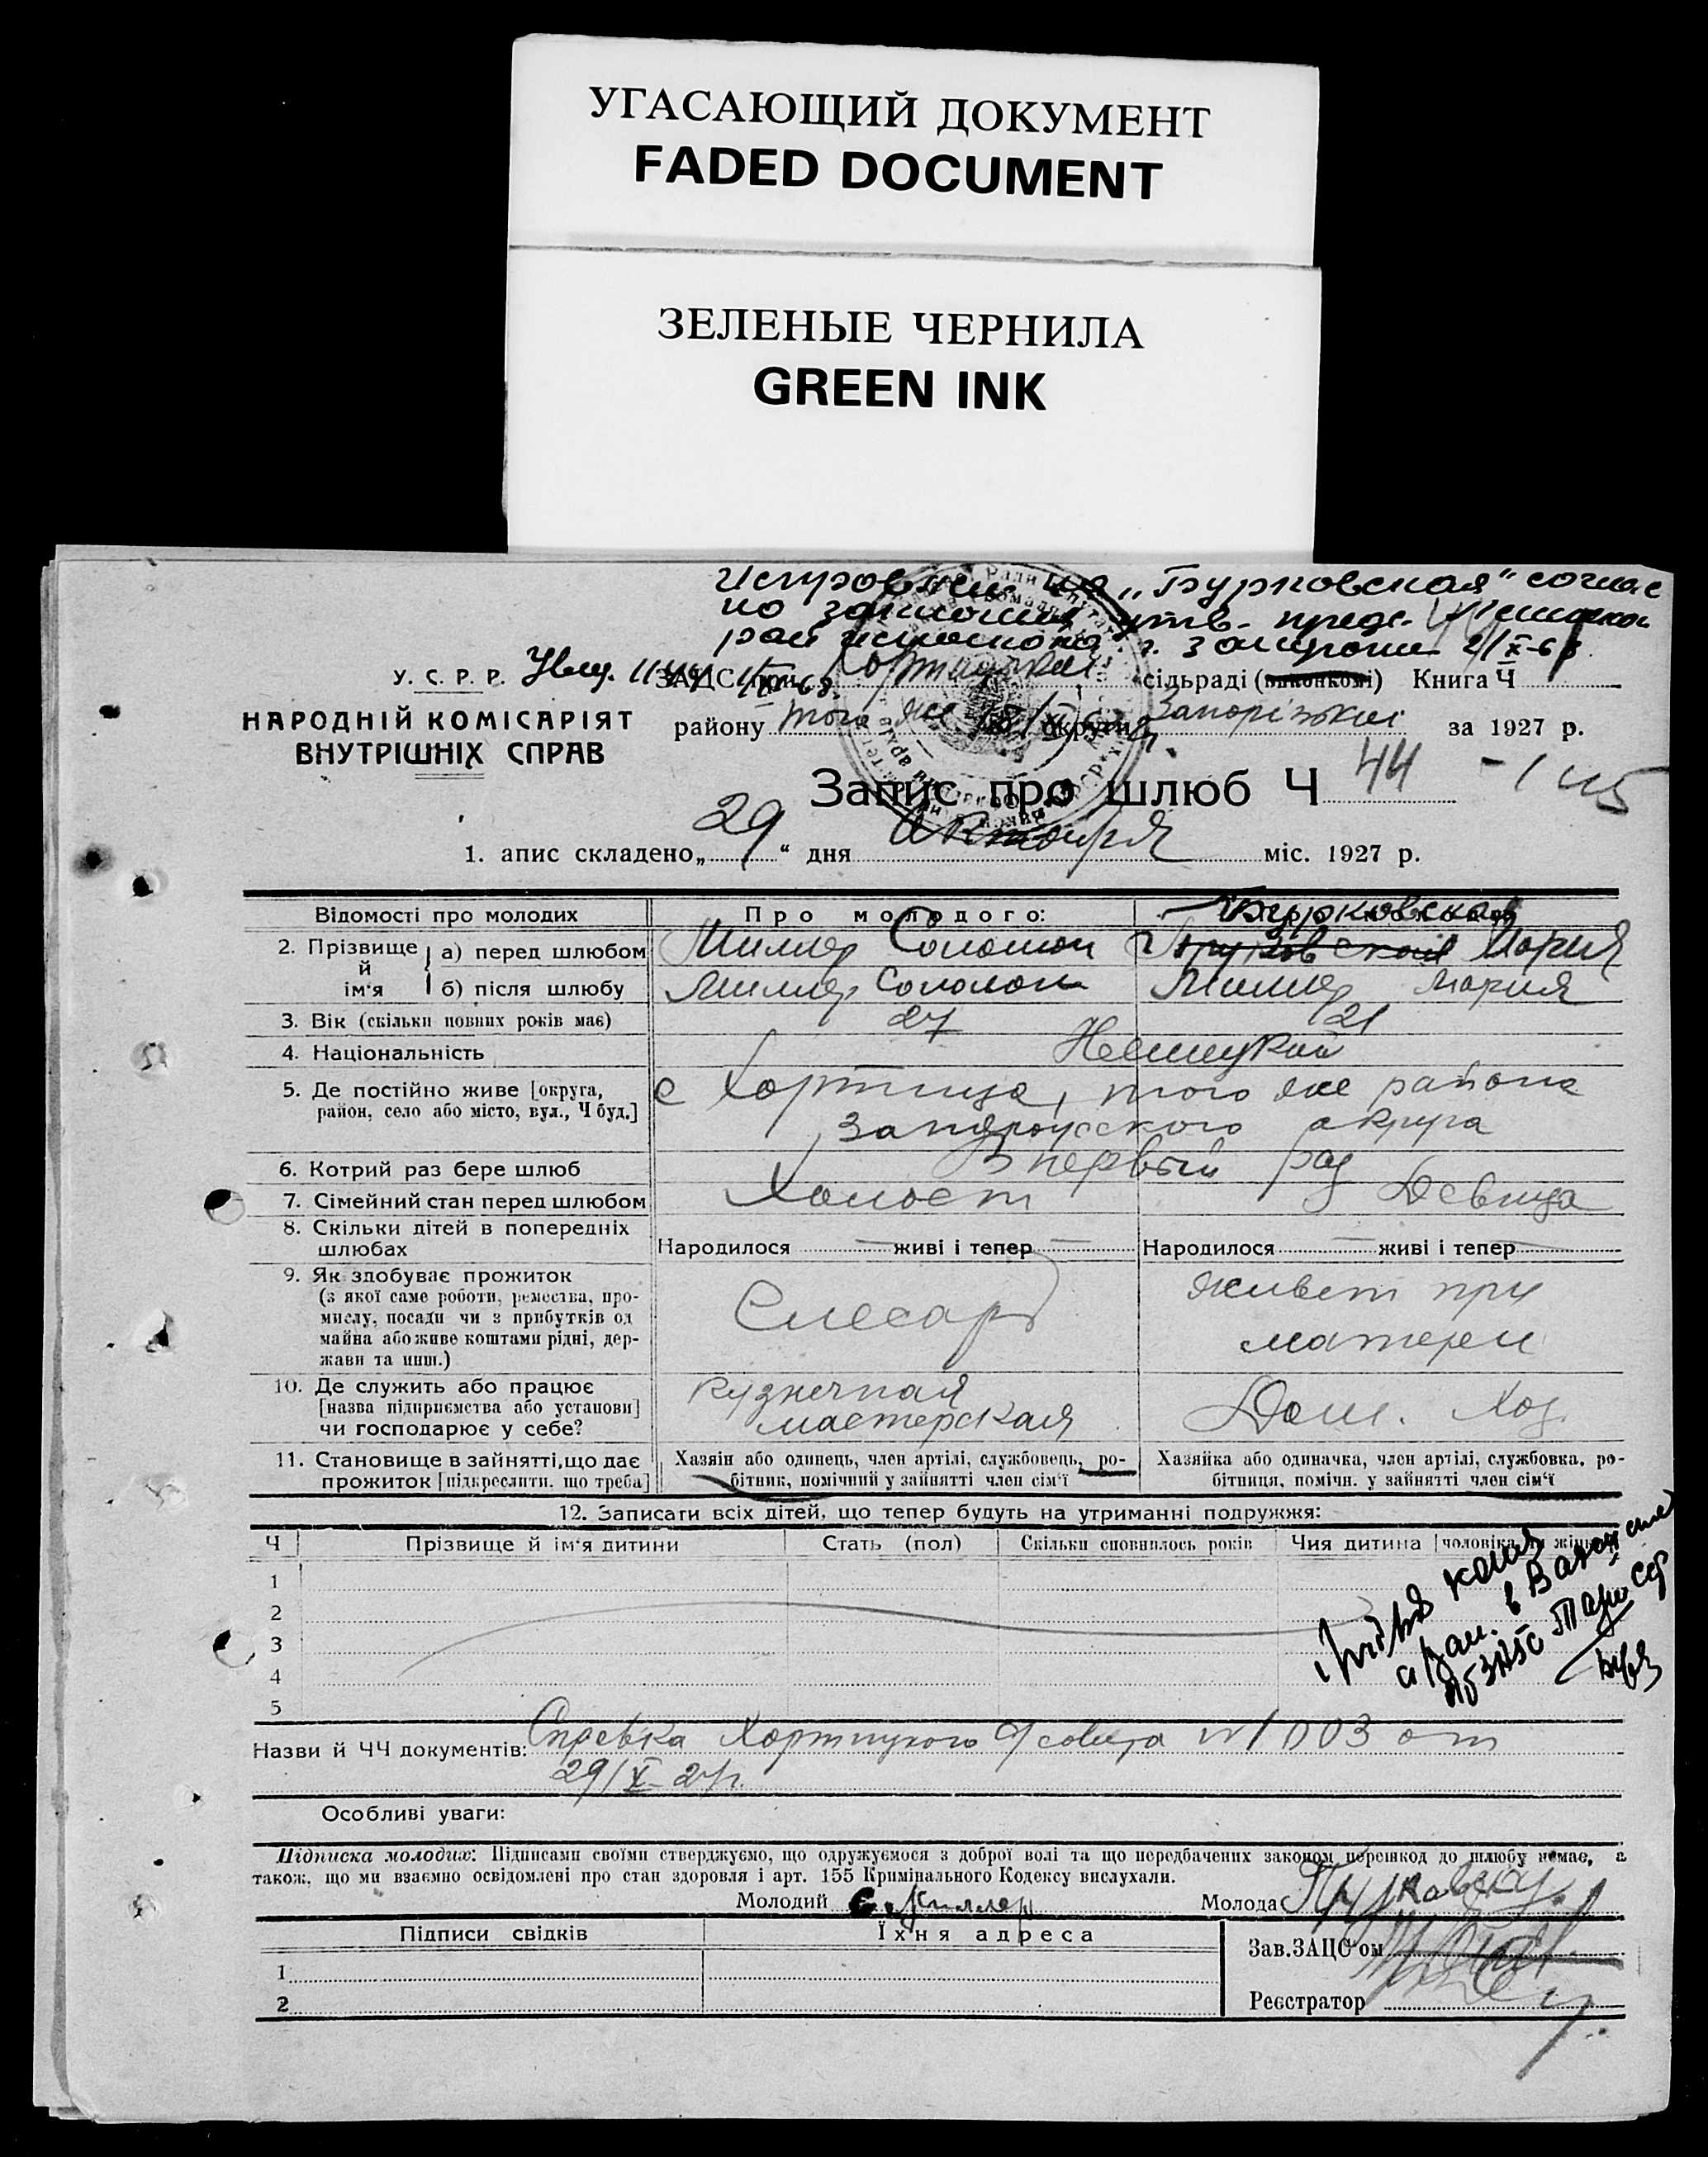 УГАСАЮЩИЙ ДОКУМЕНТ
FADED DOCUMENT
ЗЕЛЕНЫЕ ЧЕРНИЛА
GREEN INK
на „Бурковская" соглас
но утв. пред.
рай исполкома г. 21/X-68
У. С. Р. Р. ЗАГС при Хортицкая сільраді (виконкомі) Книга Ч
НАРОДНІЙ КОМІСАРІЯТ
ВНУТРІШНІХ СПРАВ
району того же округи Запоріжжі за 1927 р.
Запис про шлюб Ч 44
1. апис складено „ 29 " дня Октября міс. 1927 р.
Відомості про молодих Про молодого: Бурковская
2. Прізвище й ім'я а) перед шлюбом Миллер Соломон Мария
б) після шлюбу Миллер Соломон Миллер Мария
3. Вік (скільки повних років має) 27 21
4. Національність Немецкий
5. Де постійно живе [округа, район, село або місто, вул., Ч буд.] с Хортица, того же района
Запорожского округа
6. Котрий раз бере шлюб В первый раз
7. Сімейний стан перед шлюбом Холост Девица
8. Скільки дітей в попередніх шлюбах Народилося — живі і тепер — Народилося — живі і тепер
9. Як здобуває прожиток
(з якої саме роботи, ремества, про-
мислу, посади чи з прибутків од
майна або живе коштами рідні, дер-
жави та инш.)
Слесарь
живет при
матери
10. Де служить або працює
[назва підприємства або установи]
чи господарює у себе?
Кузнечная
мастерская
Дом. Хоз.
11. Становище в зайнятті, що дає
прожиток [підкреслити. що треба]
Хазяїн або одинець, член артілі, службовець, ро-
бітник, помічний у зайнятті член сім'ї
Хазяйка або одиначка, член артілі, службовка, ро-
бітниця, помічн. у зайнятті член сім'ї
12. Записати всіх дітей, що тепер будуть на утриманні подружжя:
Ч Прізвище й ім'я дитини Стать (пол) Скільки сповнилось років Чия дитина
1
2
3
4
5
Назви й ЧЧ документів: Справка Хортицкого с/совета N 1003 от
29/X-27г.
Особливі уваги:
Підписка молодих: Підписами своїми стверджуємо, що одружуємося з доброї волі та що передбачених законом перешкод до шлюбу немає, а
також, що ми взаємно освідомлені про стан здоровля і арт. 155 Кримінального Кодексу вислухали.
Молодий С. Миллер Молода
Підписи свідків Їхня адреса
Зав. ЗАЦС'ом
1
2
Реєстратор